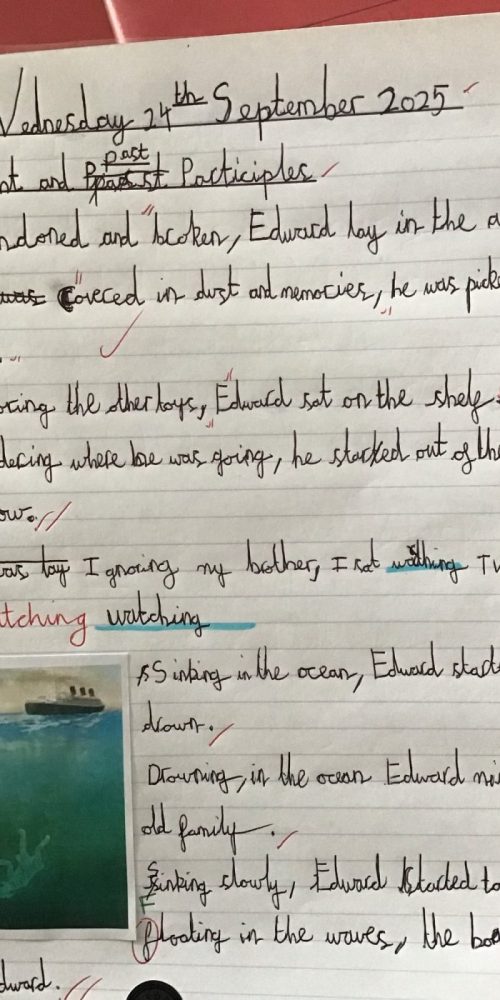 Wednesday 24th September 2025
past
and Participles
and broken, Edward lay in the
was Covered in dust and memories, he was
the other toys, Edward sat on the shelf
where he was going, he starked out of the
was lay Ignoring my bother, I sat wathing
watching
Sinking in the ocean, Edward
drown.
Drowning, in the ocean Edward
old family.
Sinking slowly, Edward started to
Floating in the waves, the